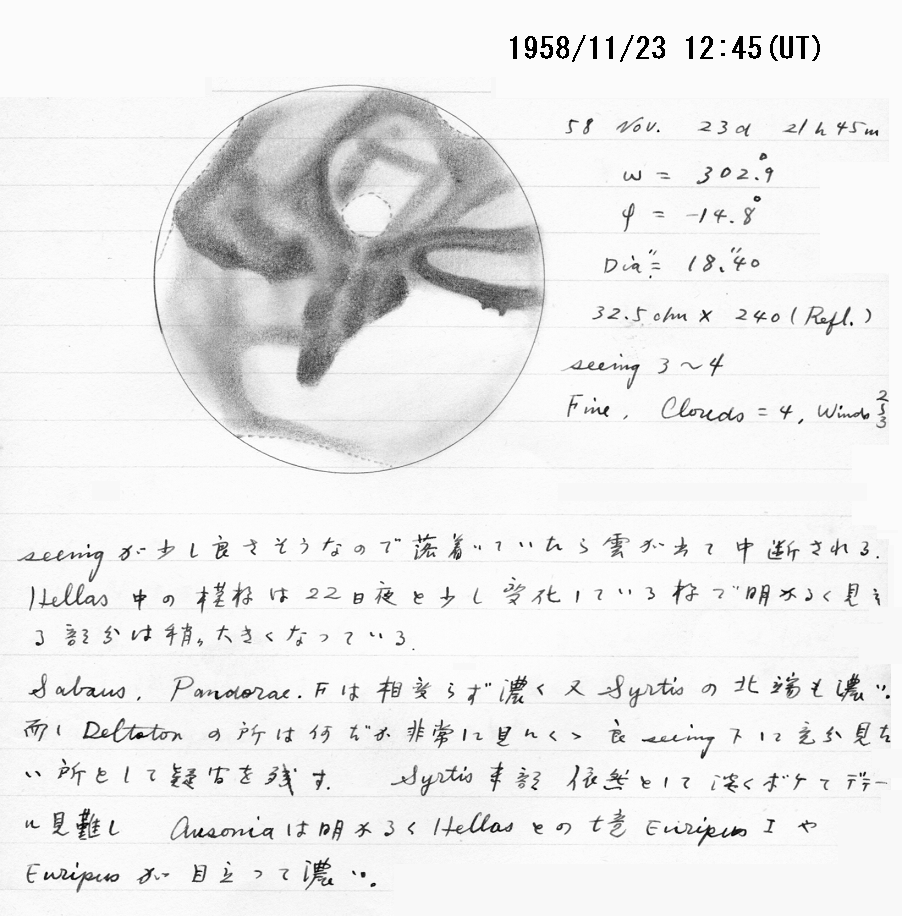 1958/11/23 12:45(UT)
58 Nov. 23d 21h45m
ω = 302.°9
φ = -14.8°
Dia = 18."40
32.5 cm × 240 (Refl.)
seeing 3~4
Fine, Clouds = 4, Winds 2~3
seeingが少し良さそうなので落着いていたら雲が出て中断される.
Hellas 中の模様は22日夜と少し変化している様で明かるく見え
る部分は稍々大きくなっている.
Sabaus, Pandorae.Fは相変らず濃く又Syrtisの北端も濃い.
而し Deltoton の所は何だか非常に見にくゝ良seeing下に充分見た
い所として疑問を残す. Syrtis東部 依然として淡くボケてデテー
ル見難し Ausoniaは明かるくHellasとの境 Euripus I や
Euripus が目立って濃い.